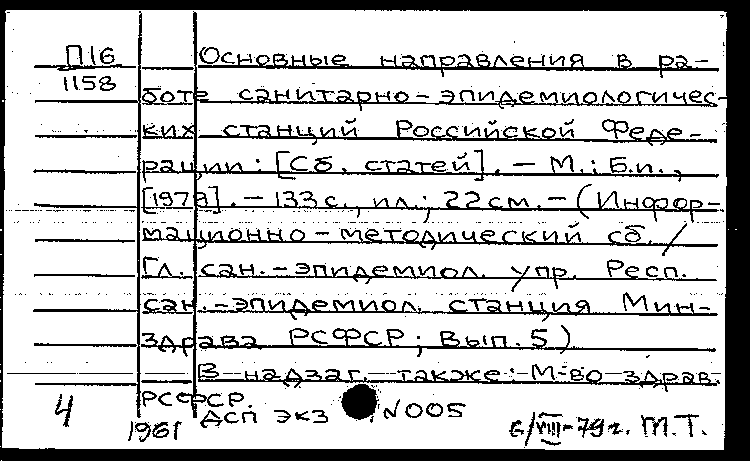 П16
1158
Основные направления в ра-
боте санитарно-эпидемиологичес-
ких станций Российской Феде-
рации: [Сб. статей]. - М.: Б.и.,
[1979]. - 133 с., ил.; 22 см. - (Инфор-
мационно-методический сб. /
Гл. сан.-эпидемиол. упр. Респ.
сан.-эпидемиол. станция Мин-
здрава РСФСР; Вып. 5)
В надзаг. также: М-во здрав.
РСФСР.
4
1961
ДСП экз N005
6/VIII-79г. М.Т.